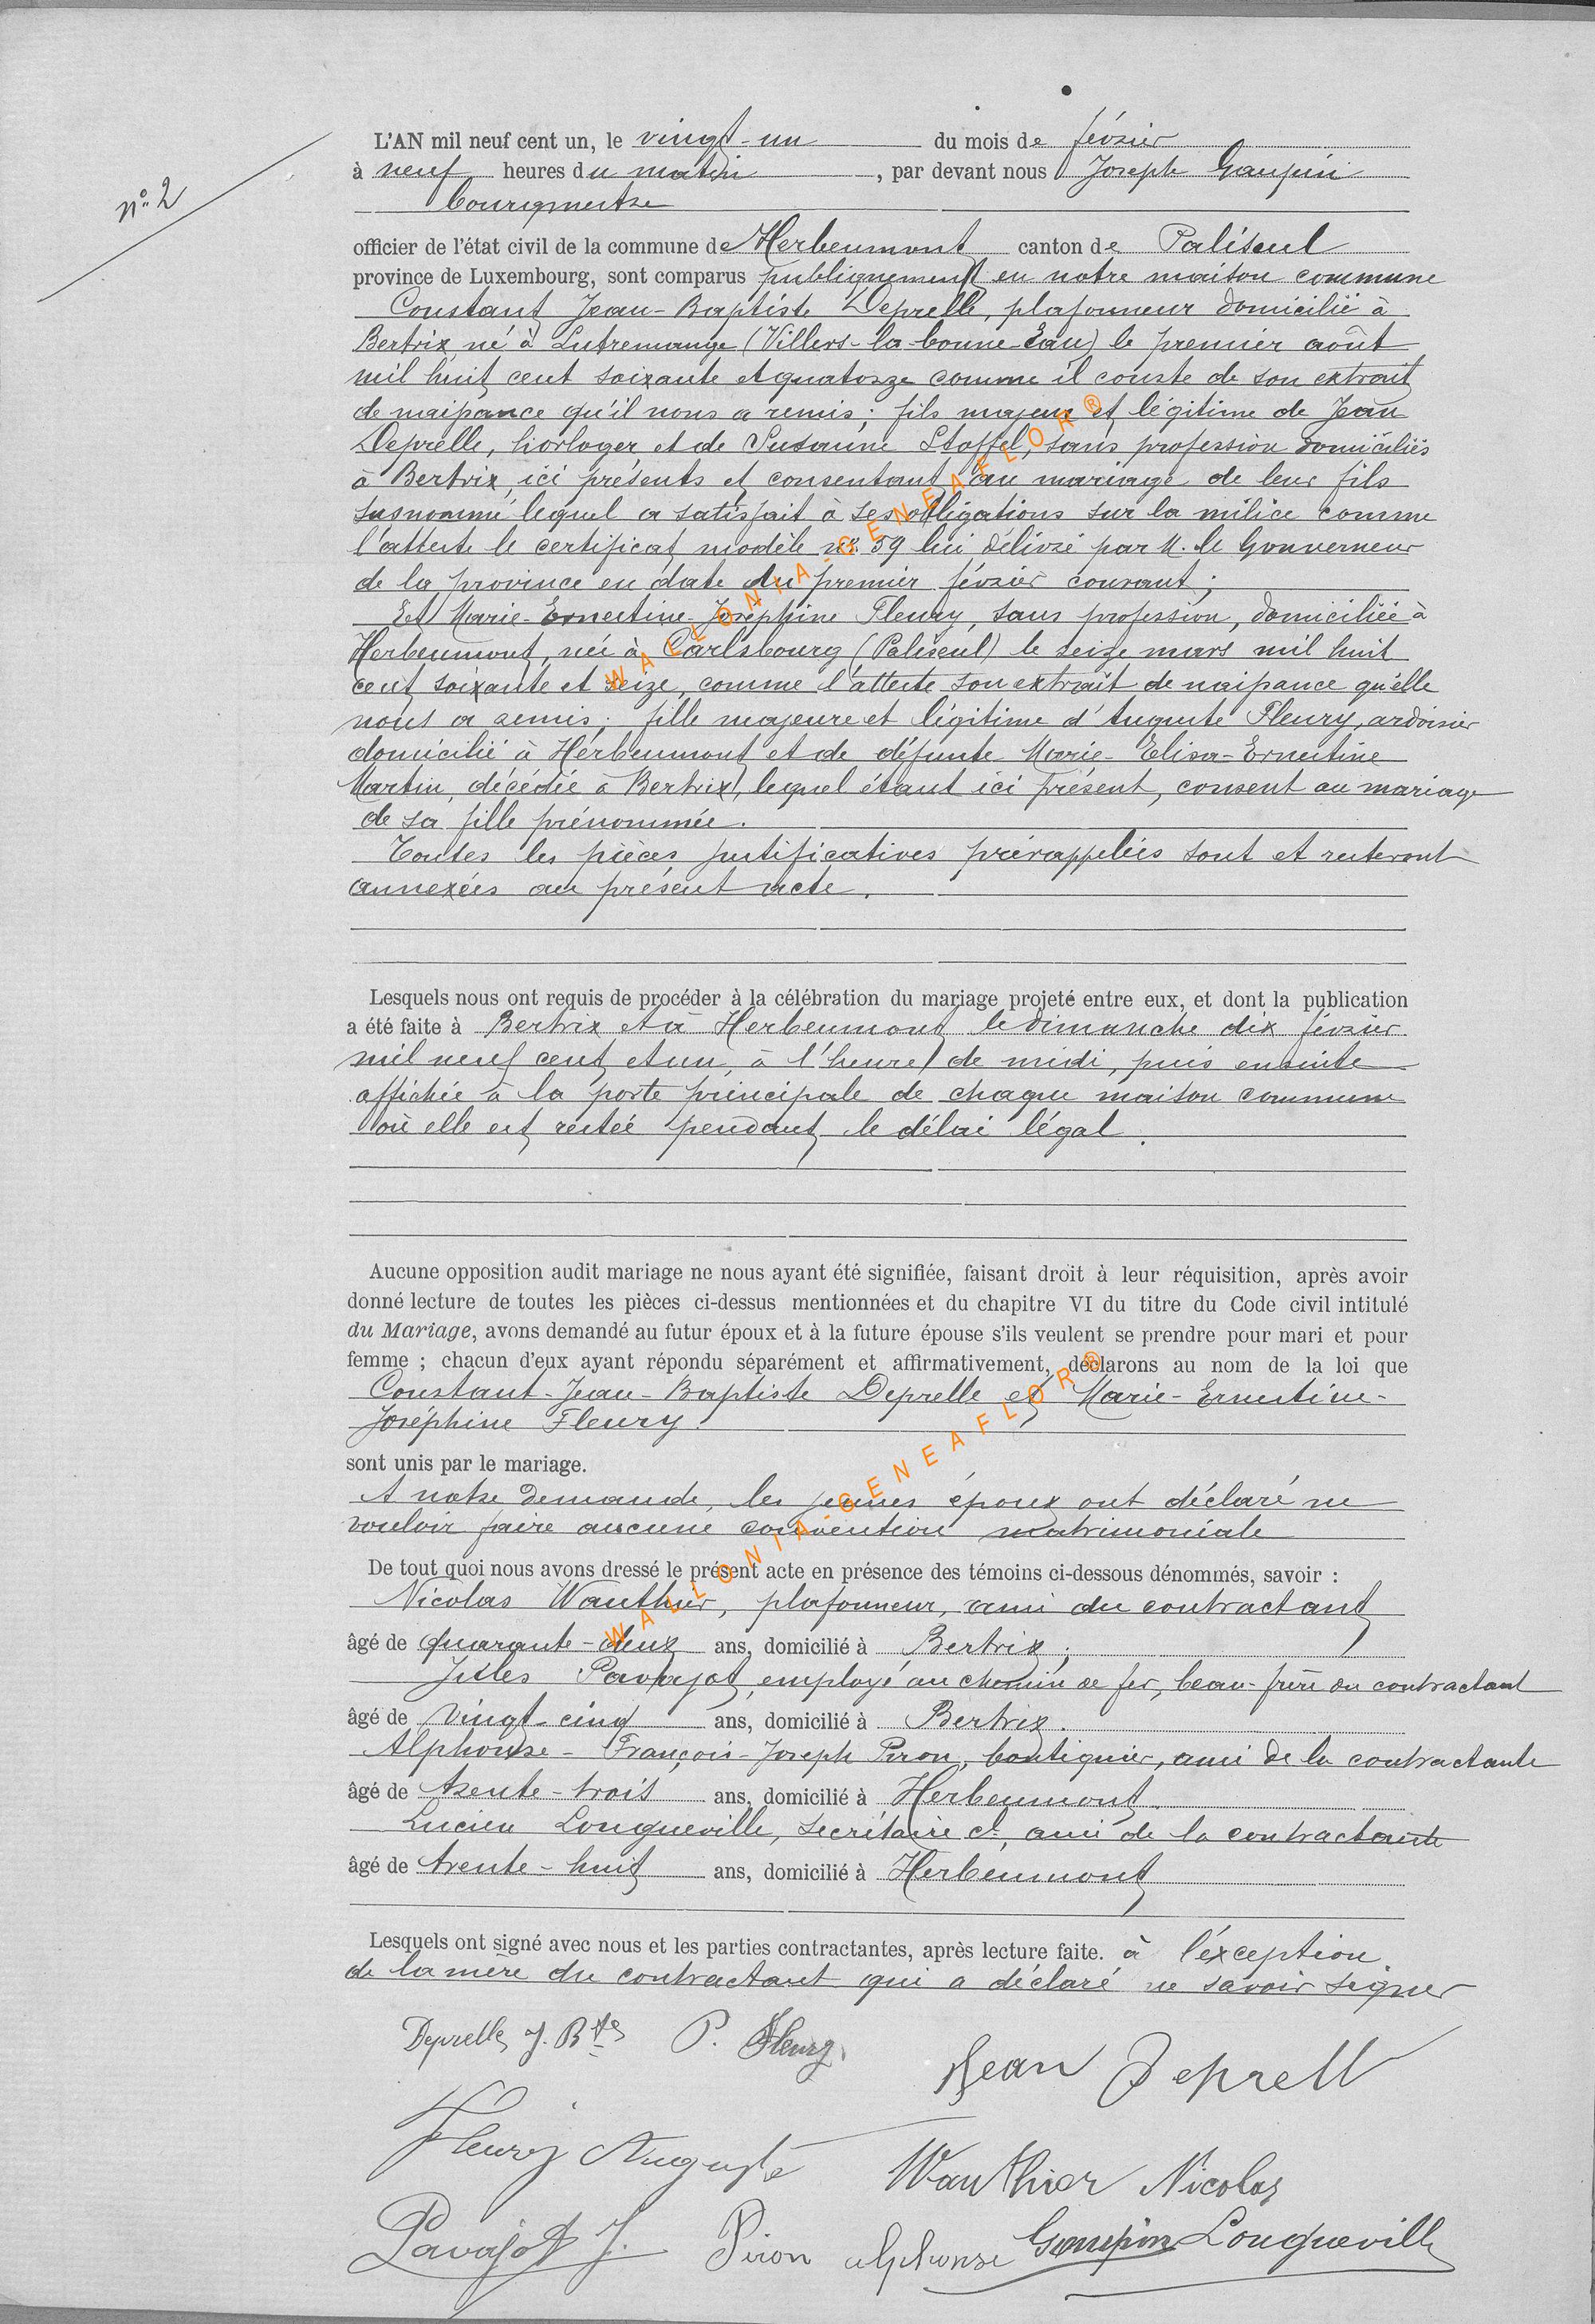 n° 2
L'AN mil neuf cent un, le vingt-un du mois de février
à neuf heures du matin, par devant nous Joseph Gaupin
bourgmestre
officier de l'état civil de la commune de Herbeumont canton de Paliseul
province de Luxembourg, sont comparus publiquement en notre maison commune
Constant Jean-Baptiste Deprelle, plafonneur domicilié à
Bertrix né à Lutremange (Villers-la-bonne-Eau) le premier août
mil huit cent soixante et quatorze comme il conste de son extrait
de naissance qu'il nous a remis; fils majeur et légitime de Jean
Deprelle, horloger et de Susanne Stoffel, sans profession domiciliés
à Bertrix, ici présents et consentant au mariage de leur fils
susnommé lequel a satisfait à ses obligations sur la milice comme
l'atteste le certificat modèle n° 59 lui délivré par M. le Gouverneur
de la province en date du premier février courant;
Et Marie-Ernestine-Joséphine Fleury, sans profession, domiciliée à
Herbeumont, née à Carlsbourg (Paliseul) le seize mars mil huit
cent soixante et seize, comme l'atteste son extrait de naissance qu'elle
nous a remis; fille majeure et légitime d'Auguste Fleury, ardoisier
domicilié à Herbeumont et de défunte Marie-Elisa-Ernestine
Martin, décédée à Bertrix, lequel étant ici présent, consent au mariage
de sa fille prénommée.
Toutes les pièces justificatives prérappelées sont et resteront
annexées au présent acte.
Lesquels nous ont requis de procéder à la célébration du mariage projeté entre eux, et dont la publication
a été faite à Bertrix et à Herbeumont le dimanche dix février
mil neuf cent et un, à l'heure de midi, puis ensuite
affichée à la porte principale de chaque maison commune
où elle est restée pendant le délai légal.
Aucune opposition audit mariage ne nous ayant été signifiée, faisant droit à leur réquisition, après avoir
donné lecture de toutes les pièces ci-dessus mentionnées et du chapitre VI du titre du Code civil intitulé
du Mariage, avons demandé au futur époux et à la future épouse s'ils veulent se prendre pour mari et pour
femme ; chacun d'eux ayant répondu séparément et affirmativement, déclarons au nom de la loi que
Constant-Jean-Baptiste Deprelle et Marie-Ernestine-
Joséphine Fleury.
sont unis par le mariage.
A notre demande, les jeunes époux ont déclaré ne
vouloir faire aucune convention matrimoniale
De tout quoi nous avons dressé le présent acte en présence des témoins ci-dessous dénommés, savoir :
Nicolas Wauthier, plafonneur, ami du contractant
âgé de quarante-deux ans, domicilié à Bertrix;
Jules Pavajot, employé au chemin de fer, beau-frère du contractant
âgé de vingt-cinq ans, domicilié à Bertrix.
Alphonse-François-Joseph Piron, boutiquier, ami de la contractante
âgé de trente-trois ans, domicilié à Herbeumont
Lucien Longueville, secrétaire cl, ami de la contractante
âgé de trente-huit ans, domicilié à Herbeumont
Lesquels ont signé avec nous et les parties contractantes, après lecture faite. à l'exception
de la mère du contractant qui a déclaré ne savoir signer
Deprelle J. Bte P. Fleury
Jean Deprell
Fleury Auguste
Wauthier Nicolas
Pavajot J. Piron alphonse Gaupin Longueville
WALLONIA-GENEAFLOR®
WALLONIA-GENEAFLOR®